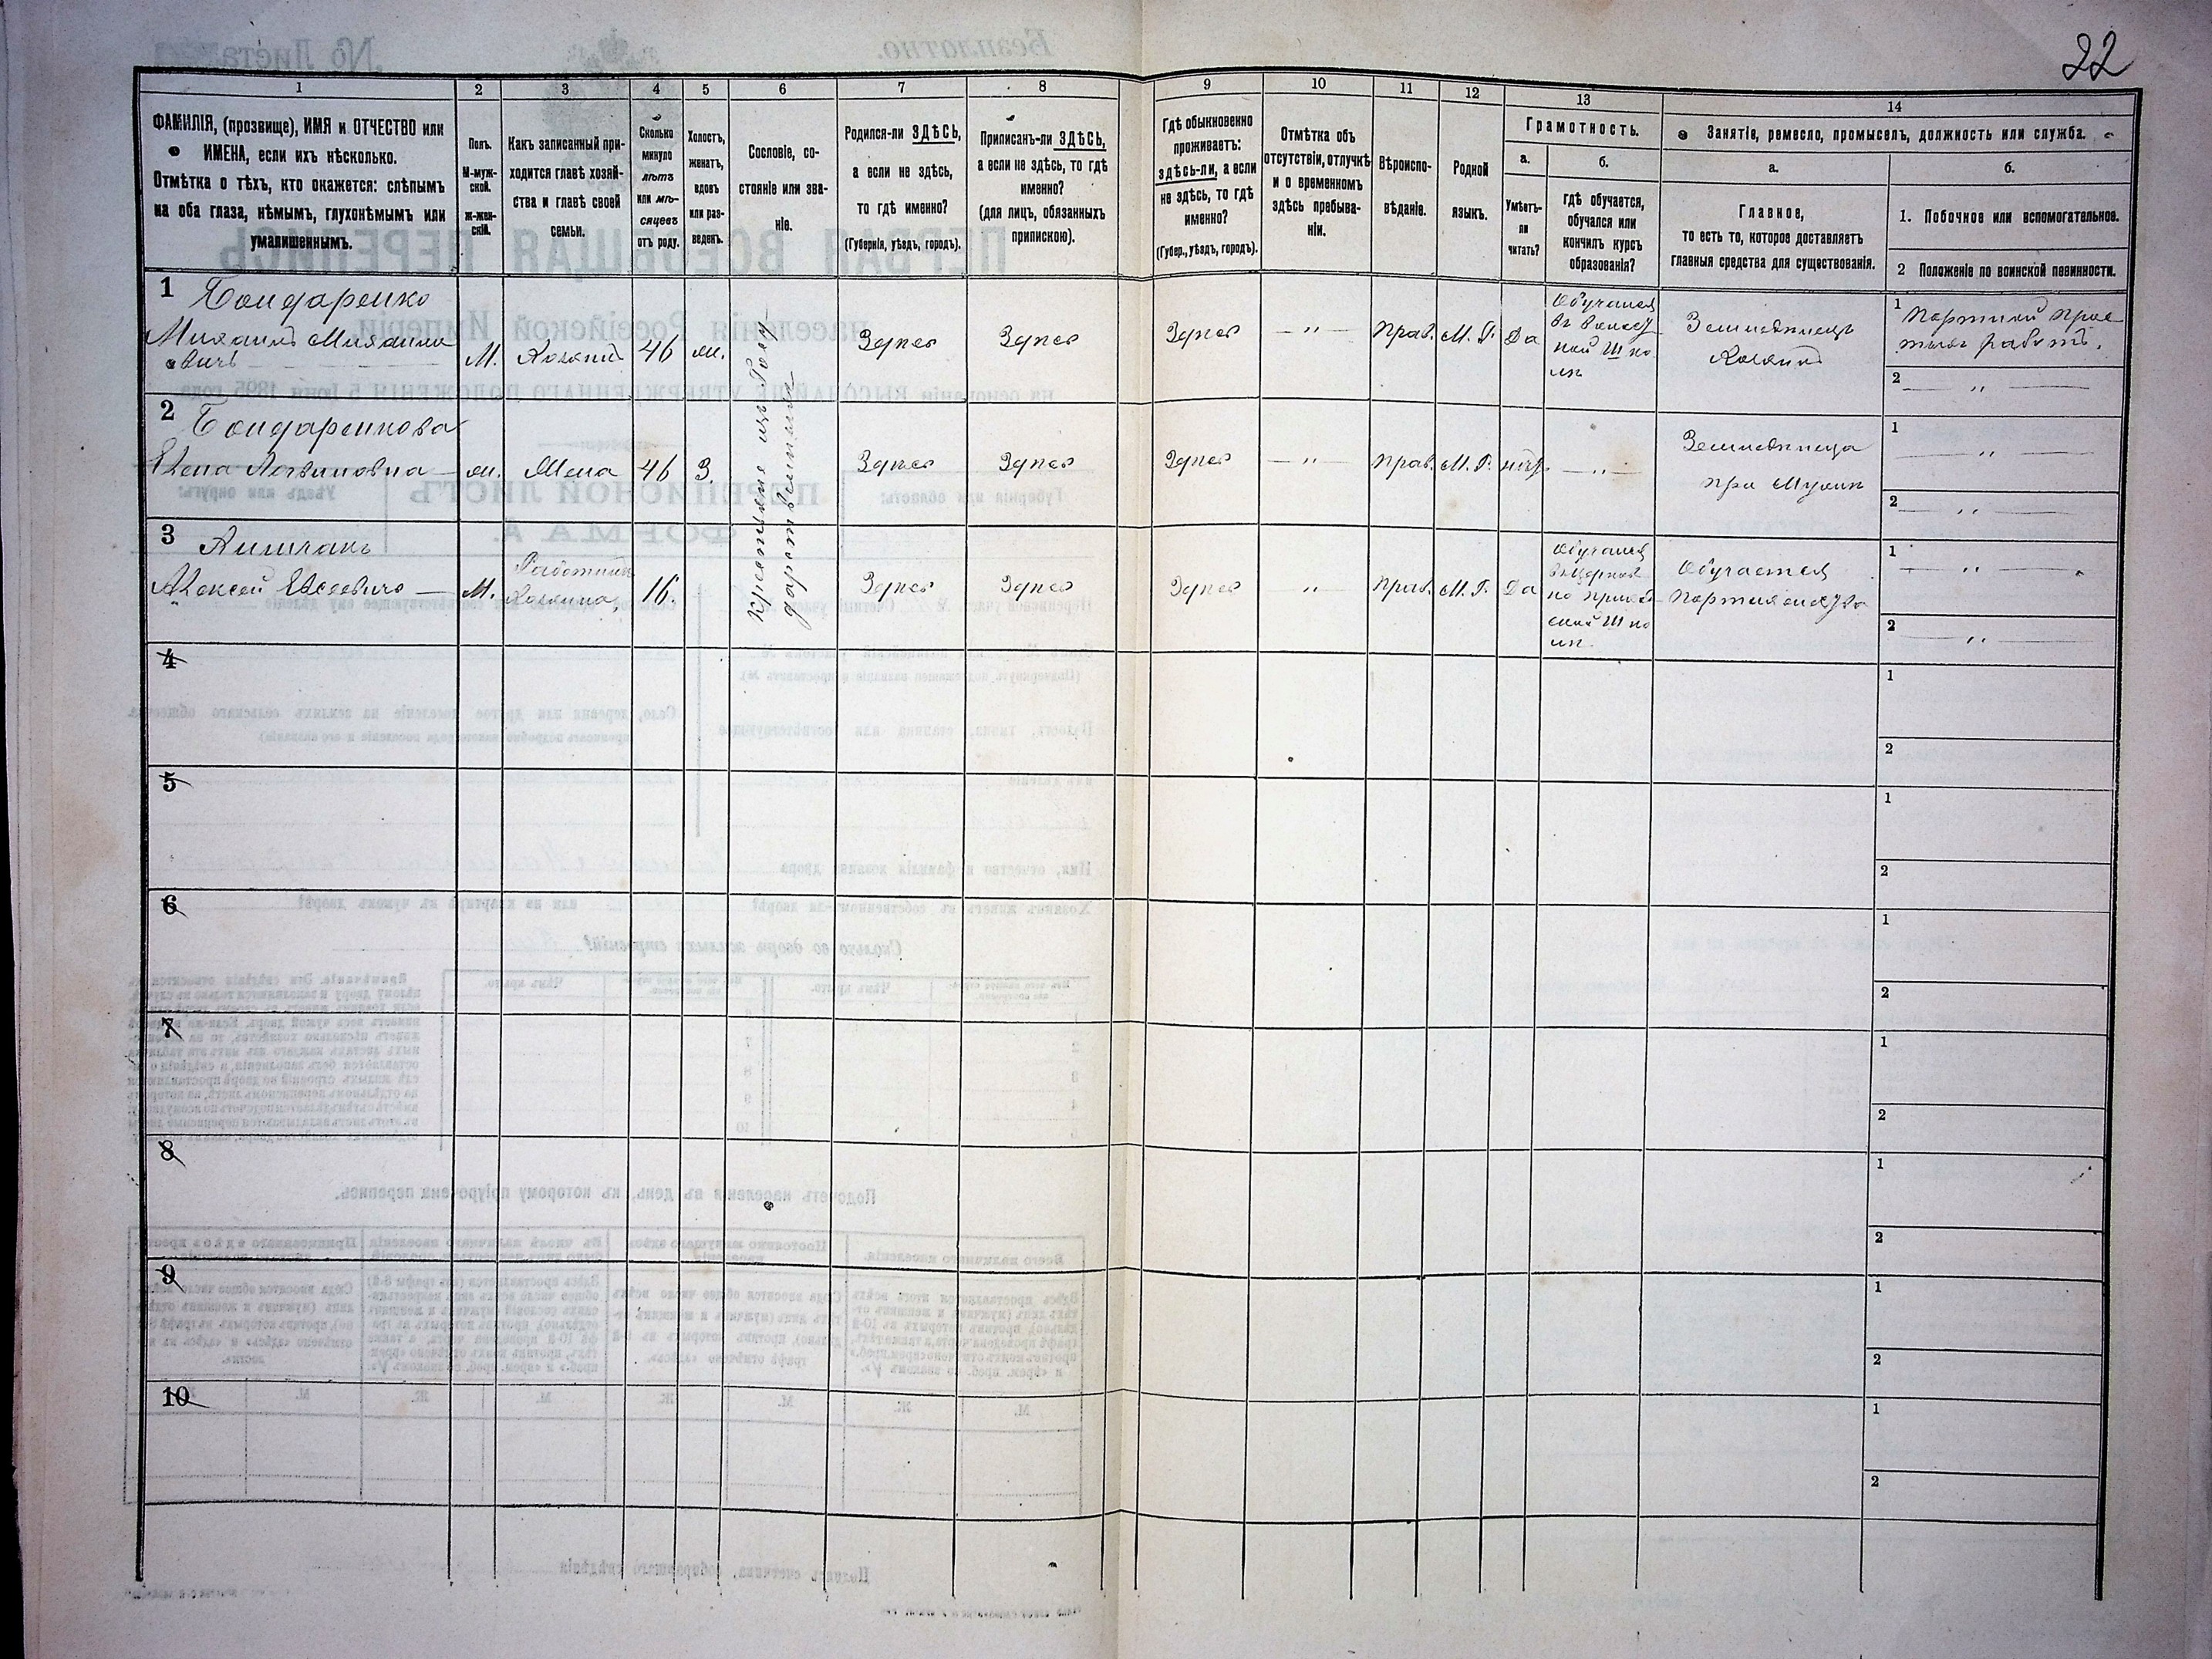 22
1
2
3
4
5
6
7
8
9
10
11
12
13
14
ФАМИЛІЯ, (прозвище), ИМЯ и ОТЧЕСТВО или
ИМЕНА, если ихъ нѣсколько.
Отмѣтка о тѣхъ, кто окажется: слѣпымъ
на оба глаза, нѣмымъ, глухонѣмымъ или
умалишеннымъ.
Полъ.
М-муж-
ской.
ж-жен-
скій.
Какъ записанный при-
ходится главѣ хозяй-
ства и главѣ своей
семьи.
Сколько
минуло
лѣтъ
или мѣ-
сяцевъ
отъ роду.
Холостъ,
женатъ,
вдовъ
или раз-
веденъ.
Сословіе, со-
стояніе или зва-
ніе.
Родился-ли ЗДѢСЬ,
а если не здѣсь,
то гдѣ именно?
(Губернія, уѣздъ, городъ).
Приписанъ-ли ЗДѢСЬ,
а если не здѣсь, то гдѣ
именно?
(для лицъ, обязанныхъ
припискою).
Гдѣ обыкновенно
проживаетъ:
здѣсь-ли, а если
не здѣсь, то гдѣ
именно?
(Губер., уѣздъ, городъ).
Отмѣтка объ
отсутствіи, отлучкѣ
и о временномъ
здѣсь пребыва-
ніи.
Вѣроиспо-
вѣданіе.
Родной
языкъ.
Грамотность.
а.
б.
Умѣетъ-
ли
читать?
гдѣ обучается,
обучался или
кончилъ курсъ
образованія?
Занятіе, ремесло, промыселъ, должность или служба.
а.
б.
Главное,
то есть то, которое доставляетъ
главныя средства для существованія.
1. Побочное или вспомогательное.
2 Положеніе по воинской повинности.
1 Бондаренко
Михаилъ Михаило
овичъ
М.
Хозяинъ
46
ж.
Крестьяне изъ Госу-
дарственныхъ
Здѣсь
Здѣсь
Здѣсь
— " —
Прав.
М. Р.
Да
Обучался
Шко
лѣ
Земледѣлецъ
Хозяинъ
1 Портной прос
тыхъ работъ.
2 — " —
2 Бондаренкова
Елена Логвиновна
ж.
Жена
46
З.
Здѣсь
Здѣсь
Здѣсь
— " —
Прав.
М. Р.
нѣтъ
— " —
Земледѣлица
при Мужѣ
1 — " —
2 — " —
3
Алексѣй Евсеевичъ
М.
Работникъ
Хозяина,
16.
Здѣсь
Здѣсь
Здѣсь
"
Прав.
М. Р.
Да
Обучался
въ Церков
но приход
ской Шко
лѣ
Обучается
1 — " —
2 — " —
4
1
2
5
1
2
6
1
2
7
1
2
8
1
2
9
1
2
10
1
2